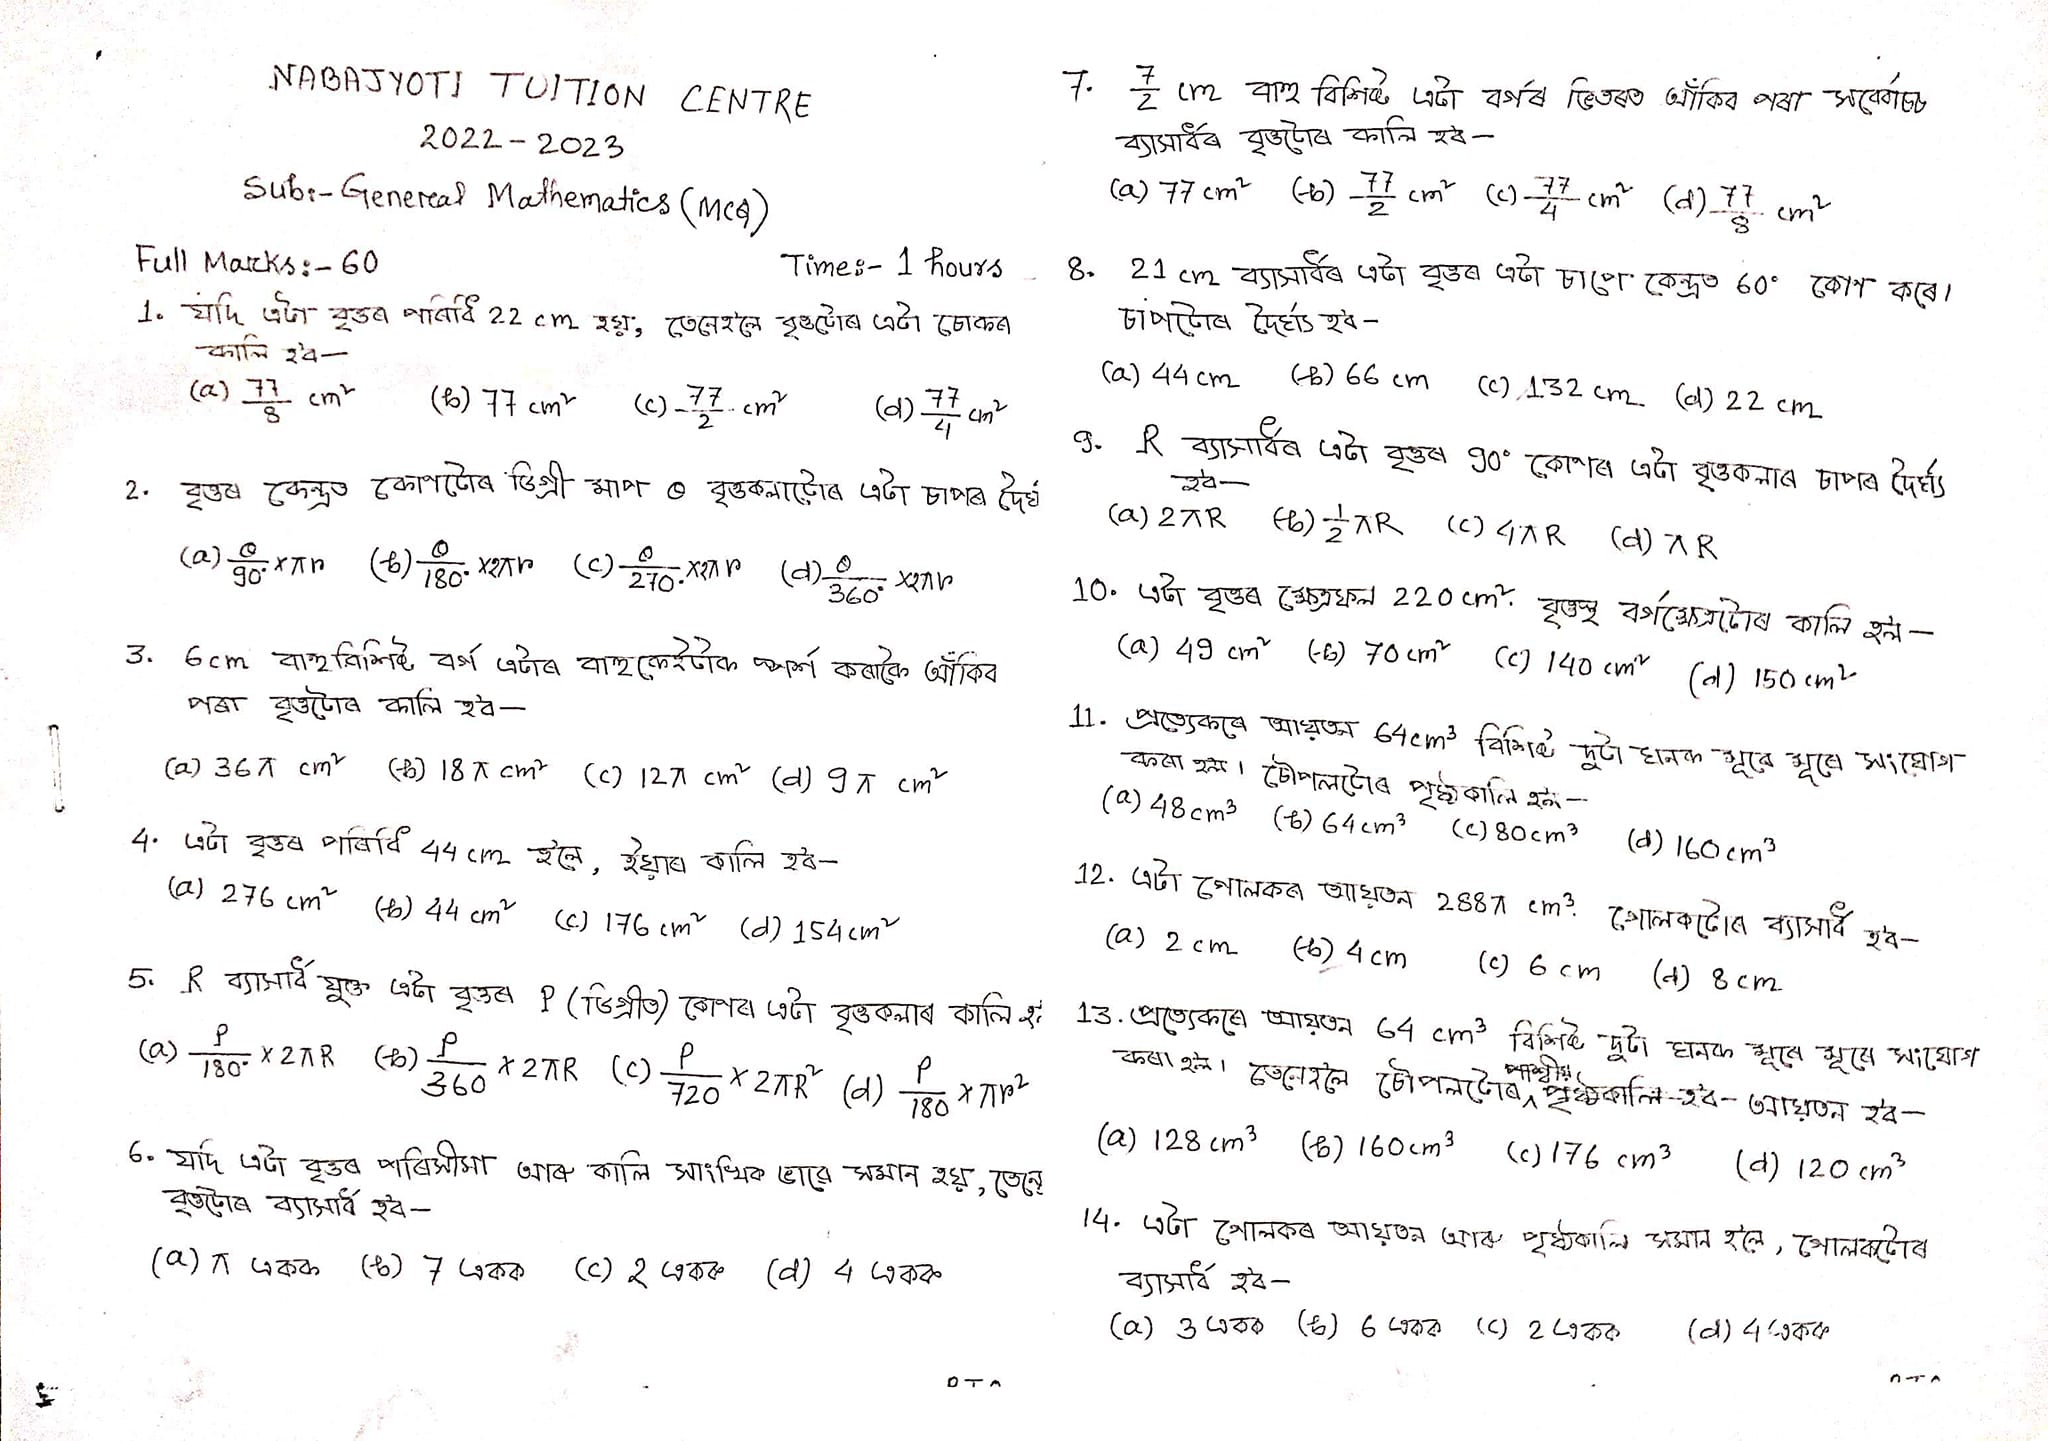 NABAJYOTI TUITION CENTRE
2022-2023
Sub:- Genereal Mathematics (MCQ)
Full Marks:- 60
Time:- 1 hours
1. যদি এটা বৃত্তৰ পৰিধি 22 cm হয়, তেনেহ'লে বৃত্তটোৰ এটা চোকৰ
কালি হ'ব—
(a) 77/8 cm² (b) 77 cm² (c) 77/2 cm² (d) 77/4 cm²
2. বৃত্তৰ কেন্দ্ৰত কোণটোৰ ডিগ্ৰী মাপ θ বৃত্তকলাটোৰ এটা চাপৰ দৈৰ্ঘ
(a) θ/90° × πr (b) θ/180° × 2πr (c) θ/270° × 2πr (d) θ/360° × 2πr
3. 6cm বাহুবিশিষ্ট বৰ্গ এটাৰ বাহুকেইটাক স্পৰ্শ কৰাকৈ আঁকিব
পৰা বৃত্তটোৰ কালি হ'ব—
(a) 36π cm² (b) 18π cm² (c) 12π cm² (d) 9π cm²
4. এটা বৃত্তৰ পৰিধি 44 cm হ'লে, ইয়াৰ কালি হ'ব—
(a) 276 cm² (b) 44 cm² (c) 176 cm² (d) 154 cm²
5. R ব্যাসাৰ্ধ যুক্ত এটা বৃত্তৰ P (ডিগ্ৰীত) কোণৰ এটা বৃত্তকলাৰ কালি
(a) P/180° × 2πR (b) P/360 × 2πR (c) P/720 × 2πR² (d) P/180 × πr²
6. যদি এটা বৃত্তৰ পৰিসীমা আৰু কালি সাংখ্যিক ভাৱে সমান হয়,
বৃত্তটোৰ ব্যাসাৰ্ধ হ'ব—
(a) π একক (b) 7 একক (c) 2 একক (d) 4 একক
7. 7/2 cm বাহু বিশিষ্ট এটা বৰ্গৰ ভিতৰত আঁকিব পৰা সৰ্বোচ্চ
ব্যাসাৰ্ধৰ বৃত্তটোৰ কালি হ'ব—
(a) 77 cm² (b) 77/2 cm² (c) 77/4 cm² (d) 77/8 cm²
8. 21 cm ব্যাসাৰ্ধৰ এটা বৃত্তৰ এটা চাপে কেন্দ্ৰত 60° কোণ কৰে।
চাপটোৰ দৈৰ্ঘ্য হ'ব—
(a) 44 cm (b) 66 cm (c) 132 cm (d) 22 cm
9. R ব্যাসাৰ্ধৰ এটা বৃত্তৰ 90° কোণৰ এটা বৃত্তকলাৰ চাপৰ দৈৰ্ঘ্য
হ'ব—
(a) 2πR (b) 1/2 πR (c) 4πR (d) πR
10. এটা বৃত্তৰ ক্ষেত্ৰফল 220 cm². বৃত্তস্থ বৰ্গক্ষেত্ৰটোৰ কালি হ'ল—
(a) 49 cm² (b) 70 cm² (c) 140 cm² (d) 150 cm²
11. প্ৰত্যেকৰে আয়তন 64cm³ বিশিষ্ট দুটা ঘনক মূৰে মূৰে সংযোগ
কৰা হ'ল। চৌপলটোৰ পৃষ্ঠকালি হ'ল—
(a) 48cm³ (b) 64cm³ (c) 80cm³ (d) 160cm³
12. এটা গোলকৰ আয়তন 288π cm³. গোলকটোৰ ব্যাসাৰ্ধ হ'ব—
(a) 2 cm (b) 4 cm (c) 6 cm (d) 8 cm
13. প্ৰত্যেকৰে আয়তন 64 cm³ বিশিষ্ট দুটা ঘনক মূৰে মূৰে সংযোগ
কৰা হ'ল। তেনেহ'লে চৌপলটোৰ পাৰ্শ্বীয় পৃষ্ঠকালি হ'ব— আয়তন হ'ব—
(a) 128 cm³ (b) 160 cm³ (c) 176 cm³ (d) 120 cm³
14. এটা গোলকৰ আয়তন আৰু পৃষ্ঠকালি সমান হ'লে, গোলকটোৰ
ব্যাসাৰ্ধ হ'ব—
(a) 3 একক (b) 6 একক (c) 2 একক (d) 4 একক